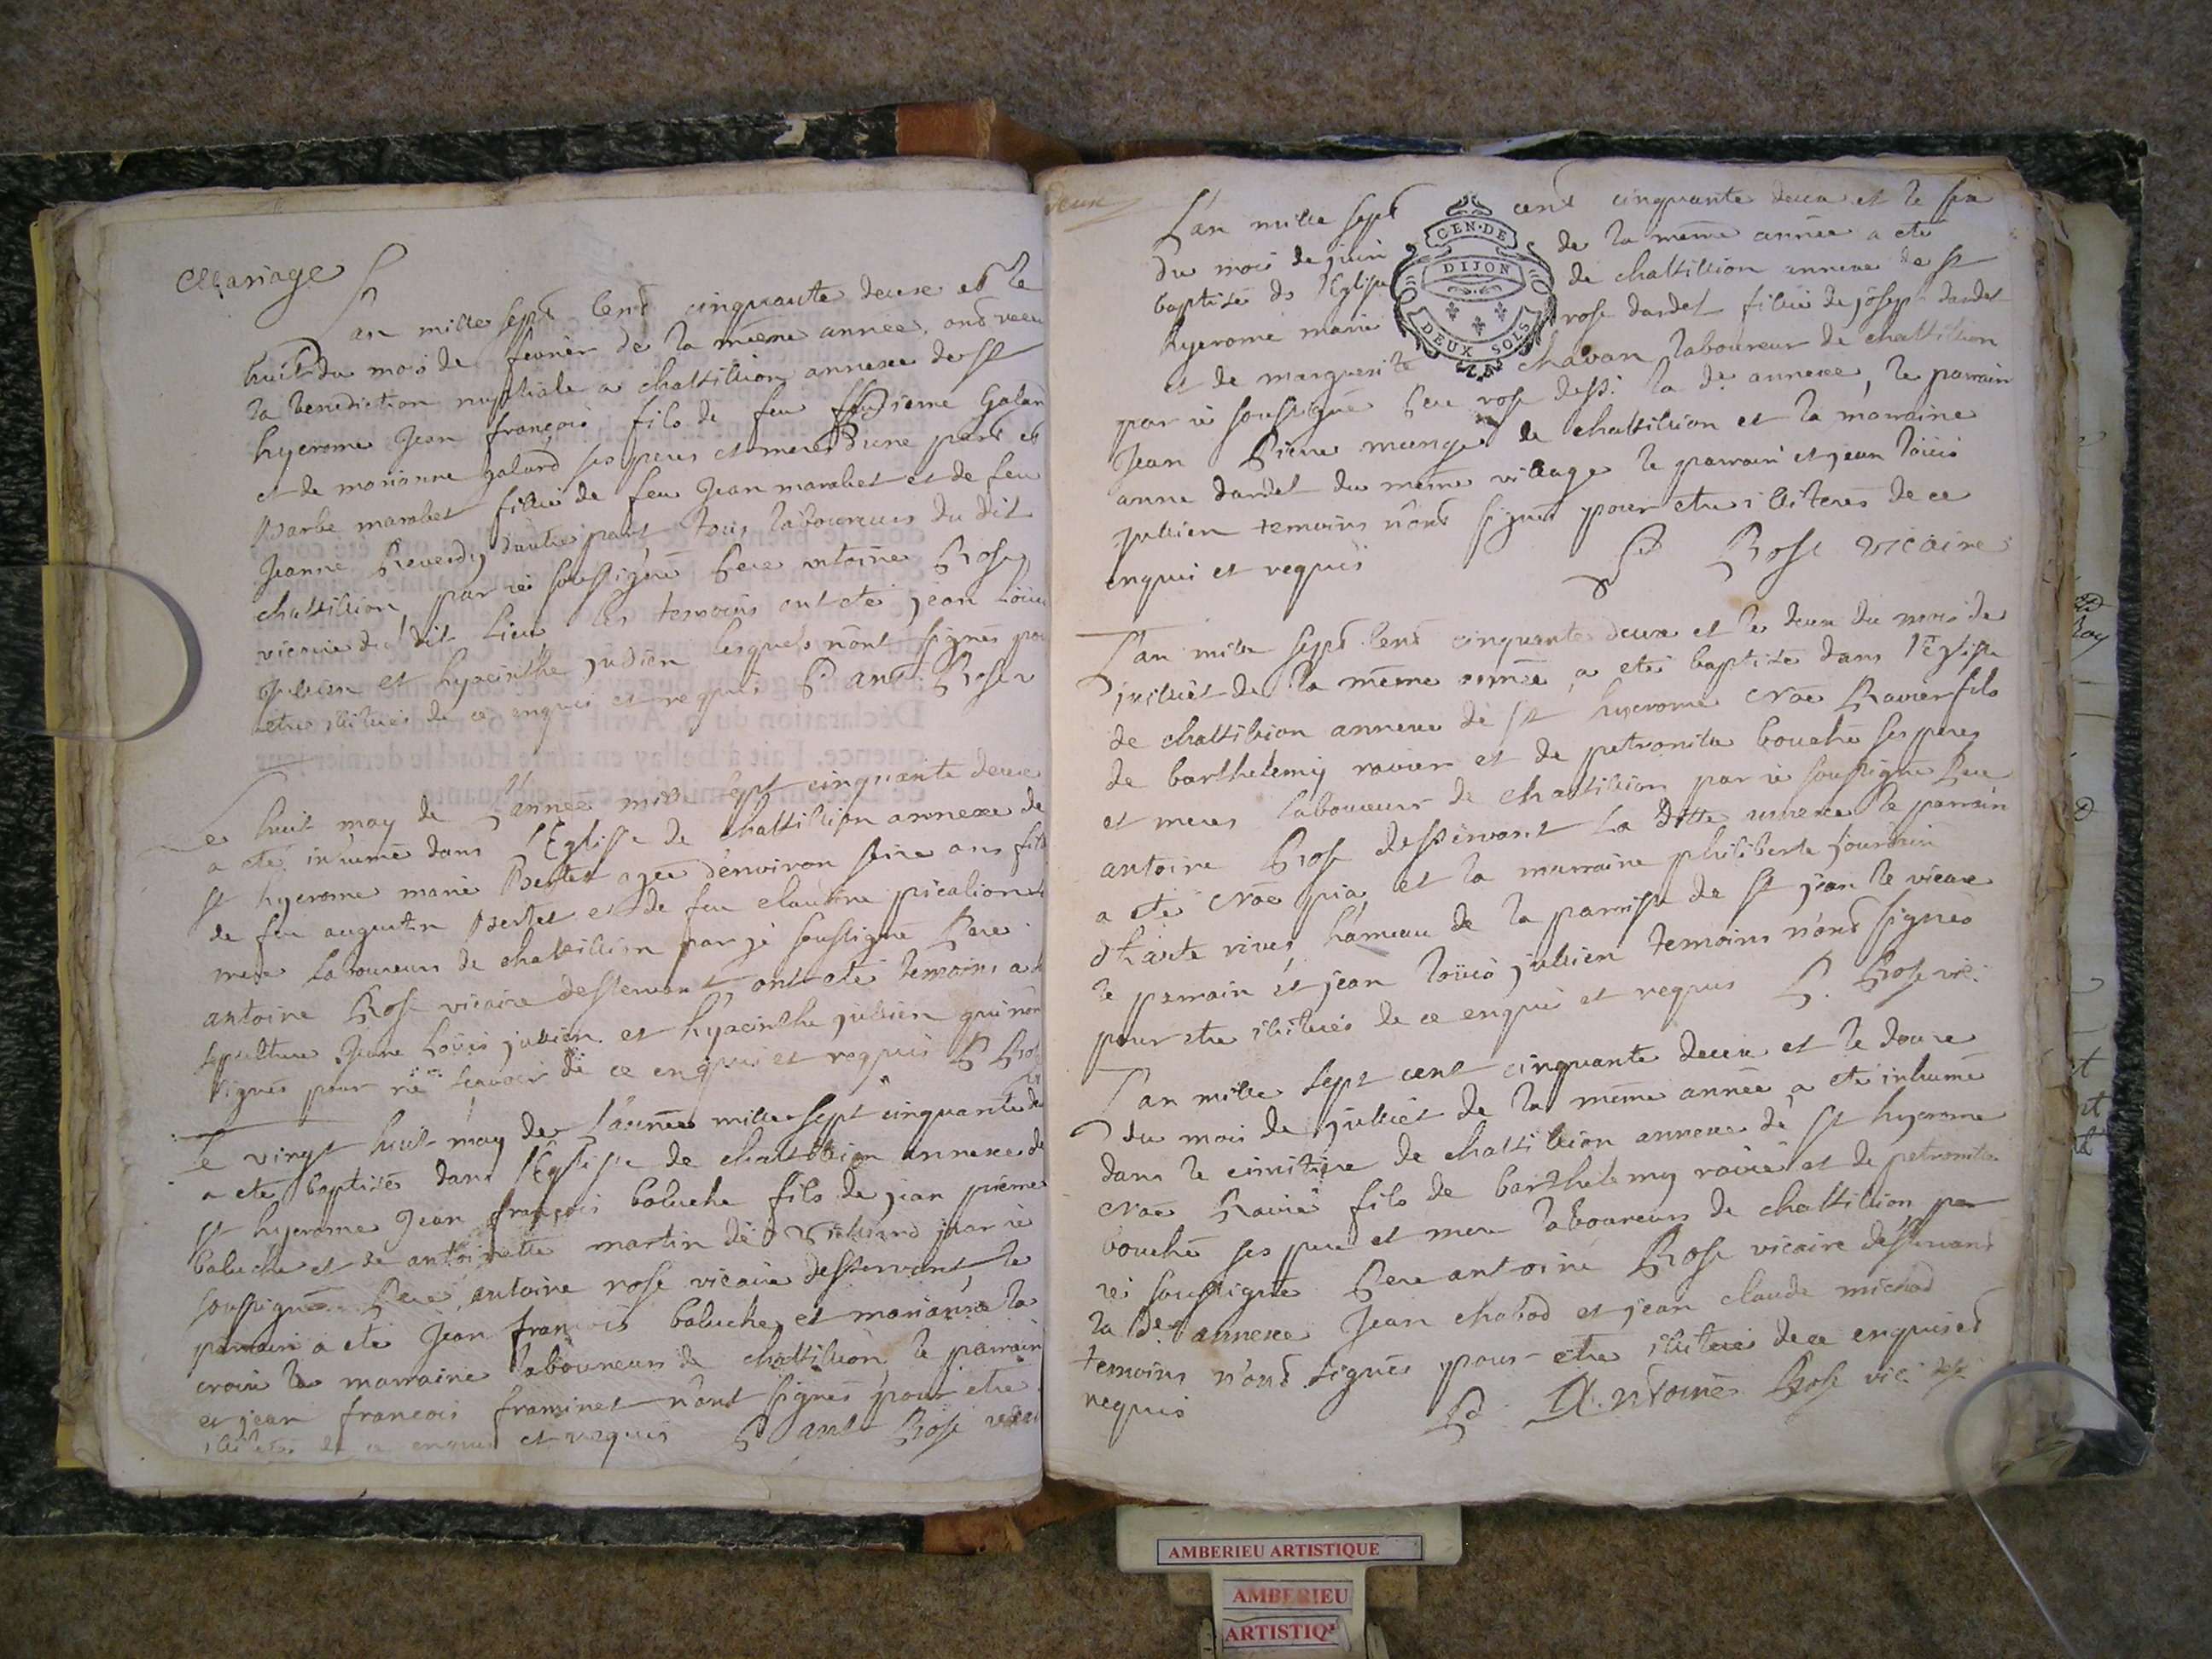 Mariage
L'an mille sept Cent cinquante deux et le
huit du mois de fevrier de la même année. ont recu
la benediction nuptiale a chattillion annexe de st
hyerome Jean françois fils de feu Galand
et de marianne galand ses peres et meres d'une part et
Barbe marabet fillie de feu Jean marabet et de feu
Jeanne Reverdy d'autre part tous laboureurs du dit
chattillion, par je soussigné Pere antoine Rose
vicaire du dit Lieu les temoins ont eté jean Loüis
Jullien et hyacinthe jullien lesquels n'ont signés pou
etre illiterés de ce enquis et requis P. ant. Rose v
Le huit may de L'année mille sept cinquante deux
a eté inhumé dans l'Eglise de chattillion annexe de
st hyerome marie Bertet agée d'environ seize ans fille
de feu augustin Bertet et de feu claudine picalion
mere Laboureurs de chattillion par je soussigné Pere
antoine Rose vicaire desservant, ont eté temoins a la
sepulture Jeane Loüis jullien et hyacinthe jullien qui n'on
signés pour ne scavoir de ce enquis et requis P Rose
Le vingt huit may de L'année mille sept cinquante deu
a eté baptisé dans l'Eglise de chattillion annexe de
st hyerome Jean françois baluche fils de jean pierre
baluche et de antoinette martin de par je
soussigné Pere antoine rose vicaire desservant, le
parrain a eté Jean françois baluche, et marianne la
croix la marraine laboureurs de chattillion, le parrain
et jean francois framinet n'ont signés pour etre
illiterés de ce enquis et requis P ant Rose
deux
L'an mille sept cent cinquante deux et le six
du mois de juin de la même année a eté
baptisé ds l'Eglise de chattillion annexe de st
hyerome marie rose dardet fillie de joseph dardet
et de marguerite chavan laboureur de chattillion
par je soussigné Pere rose dess. la de annexe, le parrain
Jean Pierre mange de chattillion et la marraine
anne dardet du même village le parrain et jean loüis
jullien temoins n'ont signés pour etre illiterés de ce
enquis et requis P Rose vicaire
GEN · DE
DIJON
DEUX SOLS
L'an mille sept Cent cinquante deux et le deux du mois de
juillet de la même année a eté baptisé dans l'Eglise
de chattillion annexe de st hyerome Ravier fils
de barthelemy ravier et de petronille bouché ses peres
et meres laboureurs de chattillion par je soussigné Pere
antoine Rose desservant La ditte annexe le parrain
a eté pia, et la marraine philiberte jourdain
d'haute rives, hameau de la parroisse de st jean le vieux
le parrain et jean loüis jullien temoins n'ont signés
pour etre illiterés de ce enquis et requis P. Rose vic.
L'an mille sept cent cinquante deux et le douze
du mois de juillet de la même année a eté inhumé
dans le cimitiere de chattillion annexe de st hyerome
Ravié fils de barthelemy ravié et de petronille
bouché ses pere et mere laboureurs de chattillion par
je soussigné Pere antoine Rose vicaire desservant
la de annexe Jean chabod et jean claude michod
temoins n'ont signés pour etre illiteré de ce enquis et
requis P. Antoine Rose vic. dess.
AMBERIEU ARTISTIQUE
AMBERIEU
ARTISTIQ